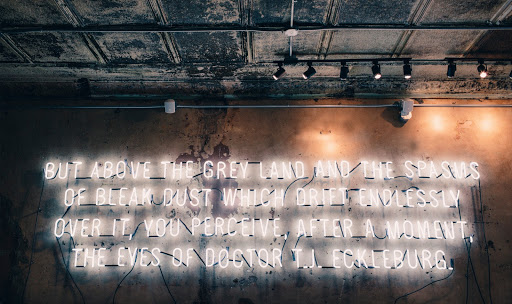 BUT ABOVE THE GREY LAND AND THE SPASMS
OF BLEAK DUST WHICH DRIFT ENDLESSLY
OVER IT, YOU PERCEIVE, AFTER A MOMENT,
THE EYES OF DOCTOR T.J. ECKLEBURG.